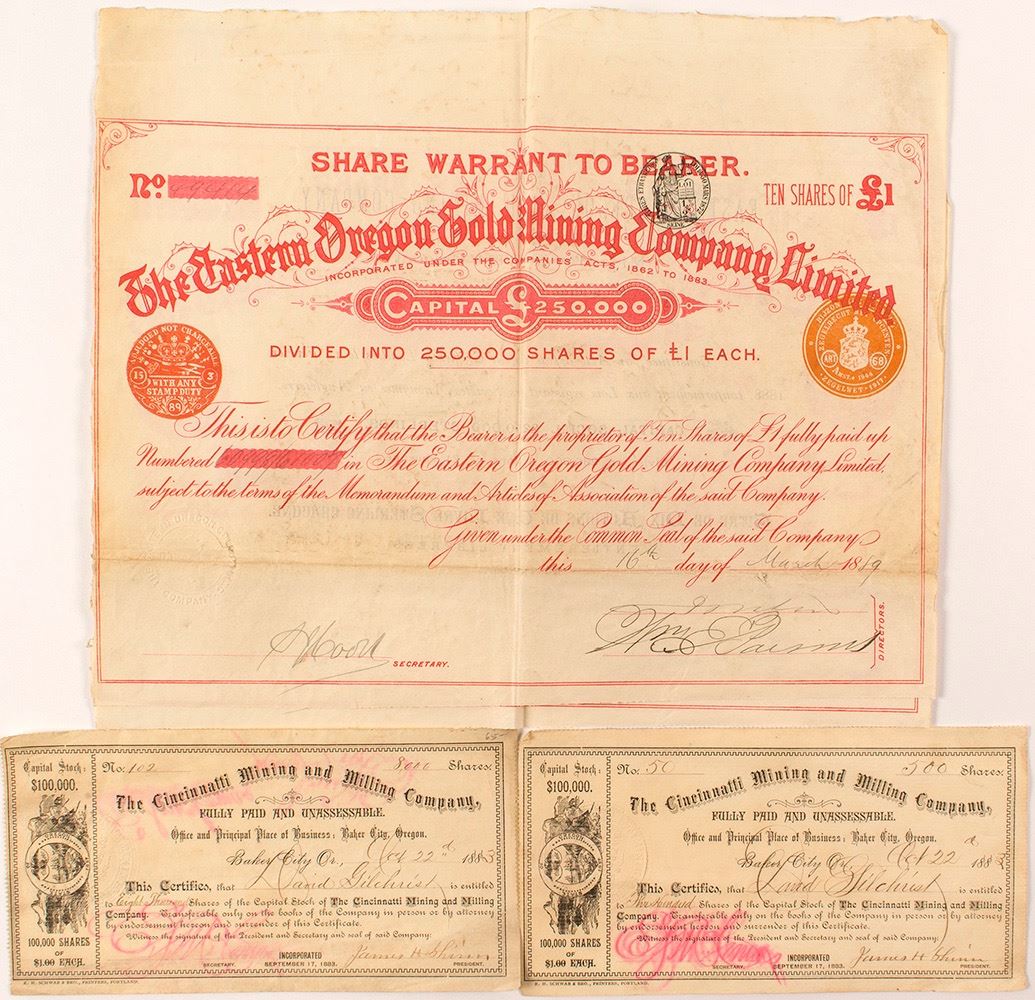 SHARE WARRANT TO BEARER.
No.
TEN SHARES OF £1
The Eastern Oregon Gold Mining Company Limited.
INCORPORATED UNDER THE COMPANIES ACTS, 1862 TO 1883.
CAPITAL £250,000
DIVIDED INTO 250,000 SHARES OF £1 EACH.
ADJUDGED NOT CHARGEABLE
WITH ANY
STAMP DUTY
15 3
89
ART 68
ZEGELWET 1917
This is to Certify that the Bearer is the proprietor of Ten Shares of £1 fully paid up
Numbered in The Eastern Oregon Gold Mining Company Limited,
subject to the terms of the Memorandum and Articles of Association of the said Company.
Given under the Common Seal of the said Company
this 16th day of March 1889
SECRETARY.
DIRECTORS.
Capital Stock:
$100,000.
No. 102 8000 Shares.
The Cincinnatti Mining and Milling Company,
FULLY PAID AND UNASSESSABLE.
Office and Principal Place of Business: Baker City, Oregon.
Baker City Or., Oct 22d 1883
This Certifies, that David Gilchrist is entitled
to Eight Shares of the Capital Stock of The Cincinnatti Mining and Milling
Company. Transferable only on the books of the Company in person or by attorney
by endorsement hereon and surrender of this Certificate.
Witness the signature of the President and Secretary and seal of said Company:
100,000 SHARES
OF
$1.00 EACH.
SECRETARY.
INCORPORATED
SEPTEMBER 17, 1883.
James H Shinn
PRESIDENT.
E. H. SCHWAB & BRO., PRINTERS, PORTLAND.
Capital Stock:
$100,000.
No. 50 500 Shares.
The Cincinnatti Mining and Milling Company,
FULLY PAID AND UNASSESSABLE.
Office and Principal Place of Business: Baker City, Oregon.
Baker City Or. Oct 22d 1883
This Certifies, that David Gilchrist is entitled
to Five Hundred Shares of the Capital Stock of The Cincinnatti Mining and Milling
Company. Transferable only on the books of the Company in person or by attorney
by endorsement hereon and surrender of this Certificate.
Witness the signature of the President and Secretary and seal of said Company:
100,000 SHARES
OF
$1.00 EACH.
SECRETARY.
INCORPORATED
SEPTEMBER 17, 1883.
James H Shinn
PRESIDENT.
E. H. SCHWAB & BRO., PRINTERS, PORTLAND.